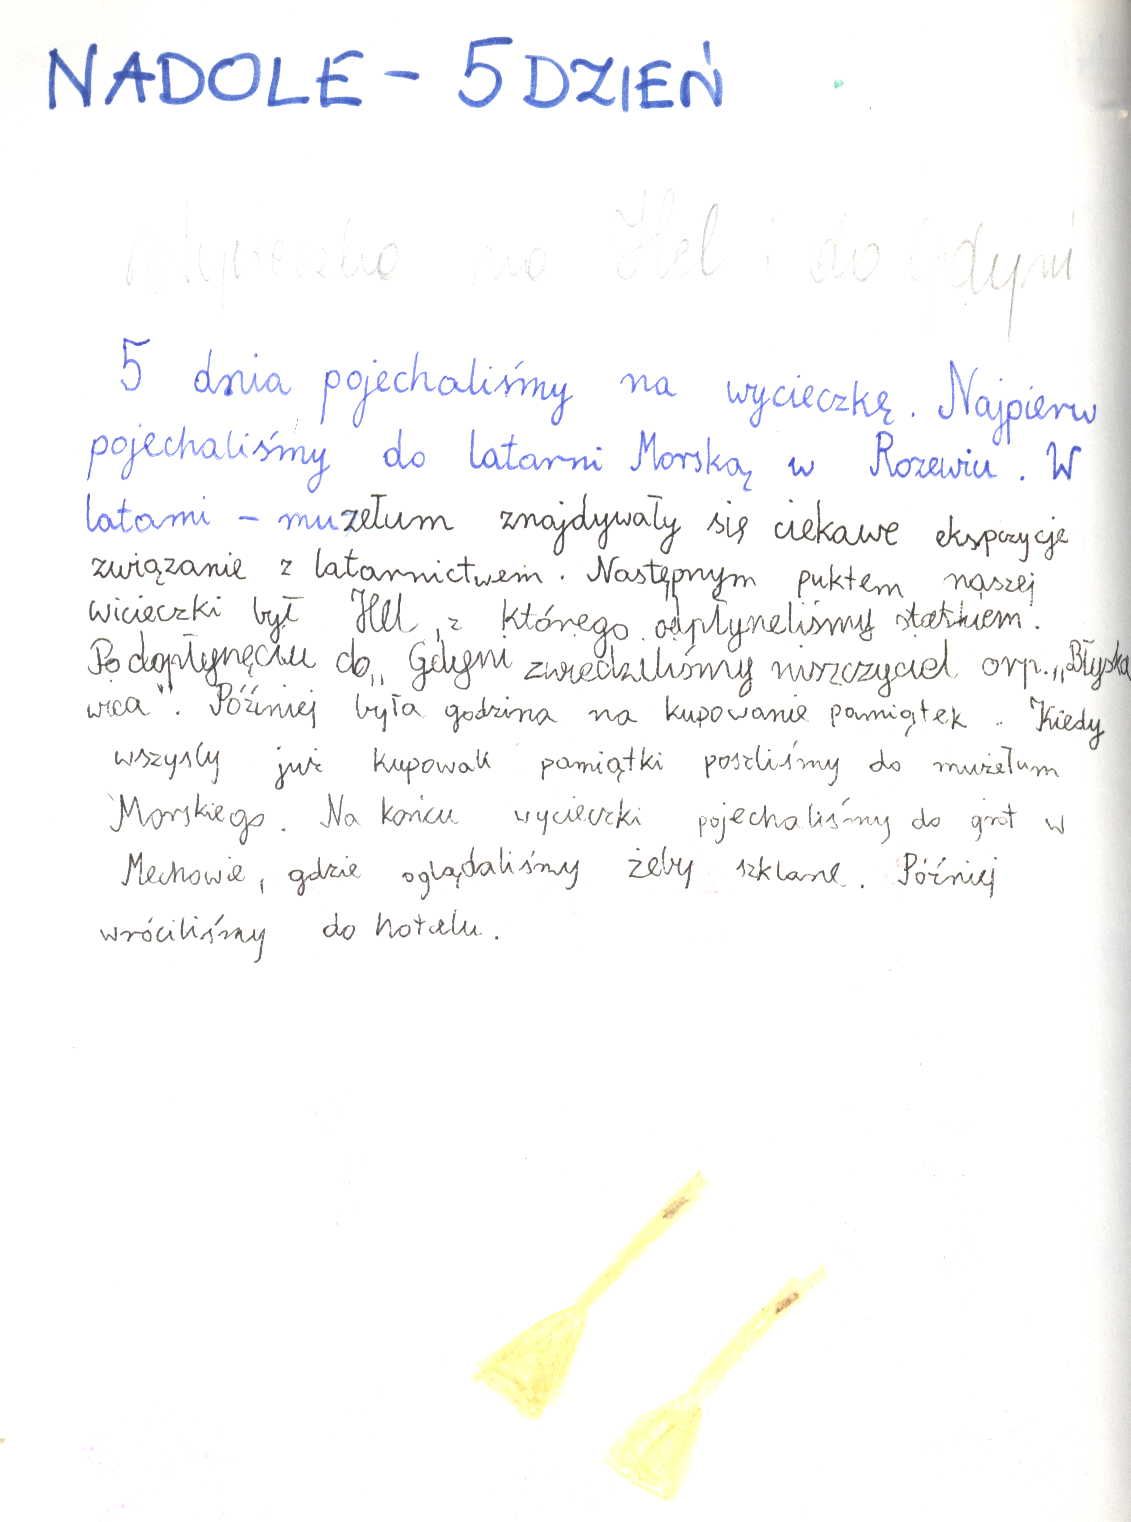 NADOLE - 5 DZIEŃ
Wycieczka na Hel i do Gdyni
5 dnia pojechaliśmy na wycieczkę. Najpierw
pojechaliśmy do latarni Morską w Rozewiu. W
latarni - muzełum znajdywały się ciekawe ekspozycje
związanie z latarnictwem. Następnym puktem naszej
wicieczki był Hel, z którego odpłyneliśmy statkiem.
Po dopłynęciu do „Gdyni zwiedziliśmy niszczyciel orp. „Błyska
wica". Później była godzina na kupowanie pamiątek. Kiedy
wszyscy już kupowali pamiątki poszliśmy do muzełum
Morskiego. Na końcu wycieczki pojechaliśmy do grot w
Mechowie, gdzie oglądaliśmy żeby szklane. Później
wróciliśmy do hotelu.